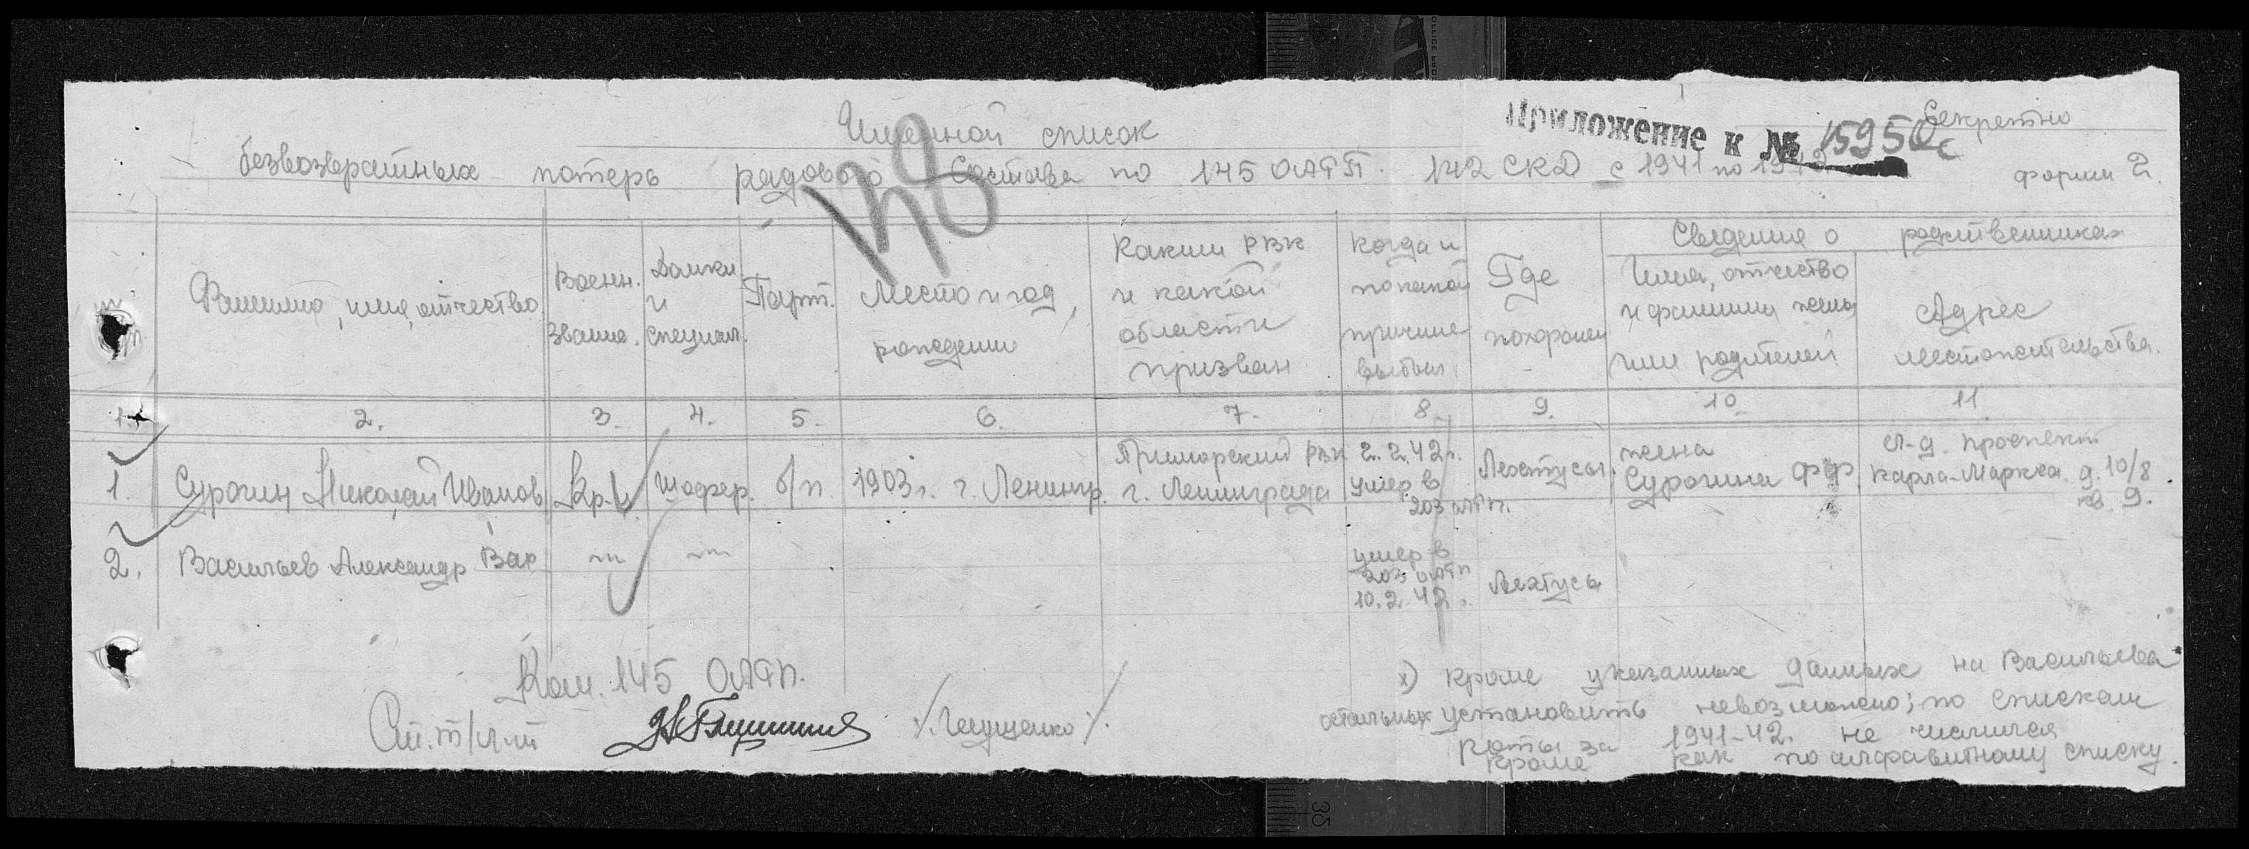 Секретно
Приложение к № 15950с
Именной список
безвозвратных потерь рядового состава по 145 ОАТП. 142 СКД с 1941 по 1942
форма 2.
148
Фамилия, имя, отчество
Военн. звание.
Должн. и специальн.
Парт.
Место и год рождения
Каким РВК и какой области призван
Когда и по какой причине выбыл
Где похоронен
Сведения о родственниках
Имя, отчество и фамилия жены или родителей
Адрес местожительства.
1. 2. 3. 4. 5. 6. 7. 8. 9. 10. 11.
1. Сурогин Николай Иванов Кр-ц шофер. б/п 1903 г. г. Ленингр. Приморский РВК г. Ленинграда 2.2.42 г. умер в 203 Лехтусы жена Сурогина Л-д. проспект Карла-Маркса д. 10/8 кв. 9.
2. Васильев Александр Вас — " — — " — умер в 203 10.2.42 г. Лехтусы
Ком. 145 ОАТП.
Ст. т/л-т
х) кроме указанных данных на Васильева
остальных установить невозможно; по спискам
роты за 1941-42. не числился
кроме как по алфавитному списку.
35